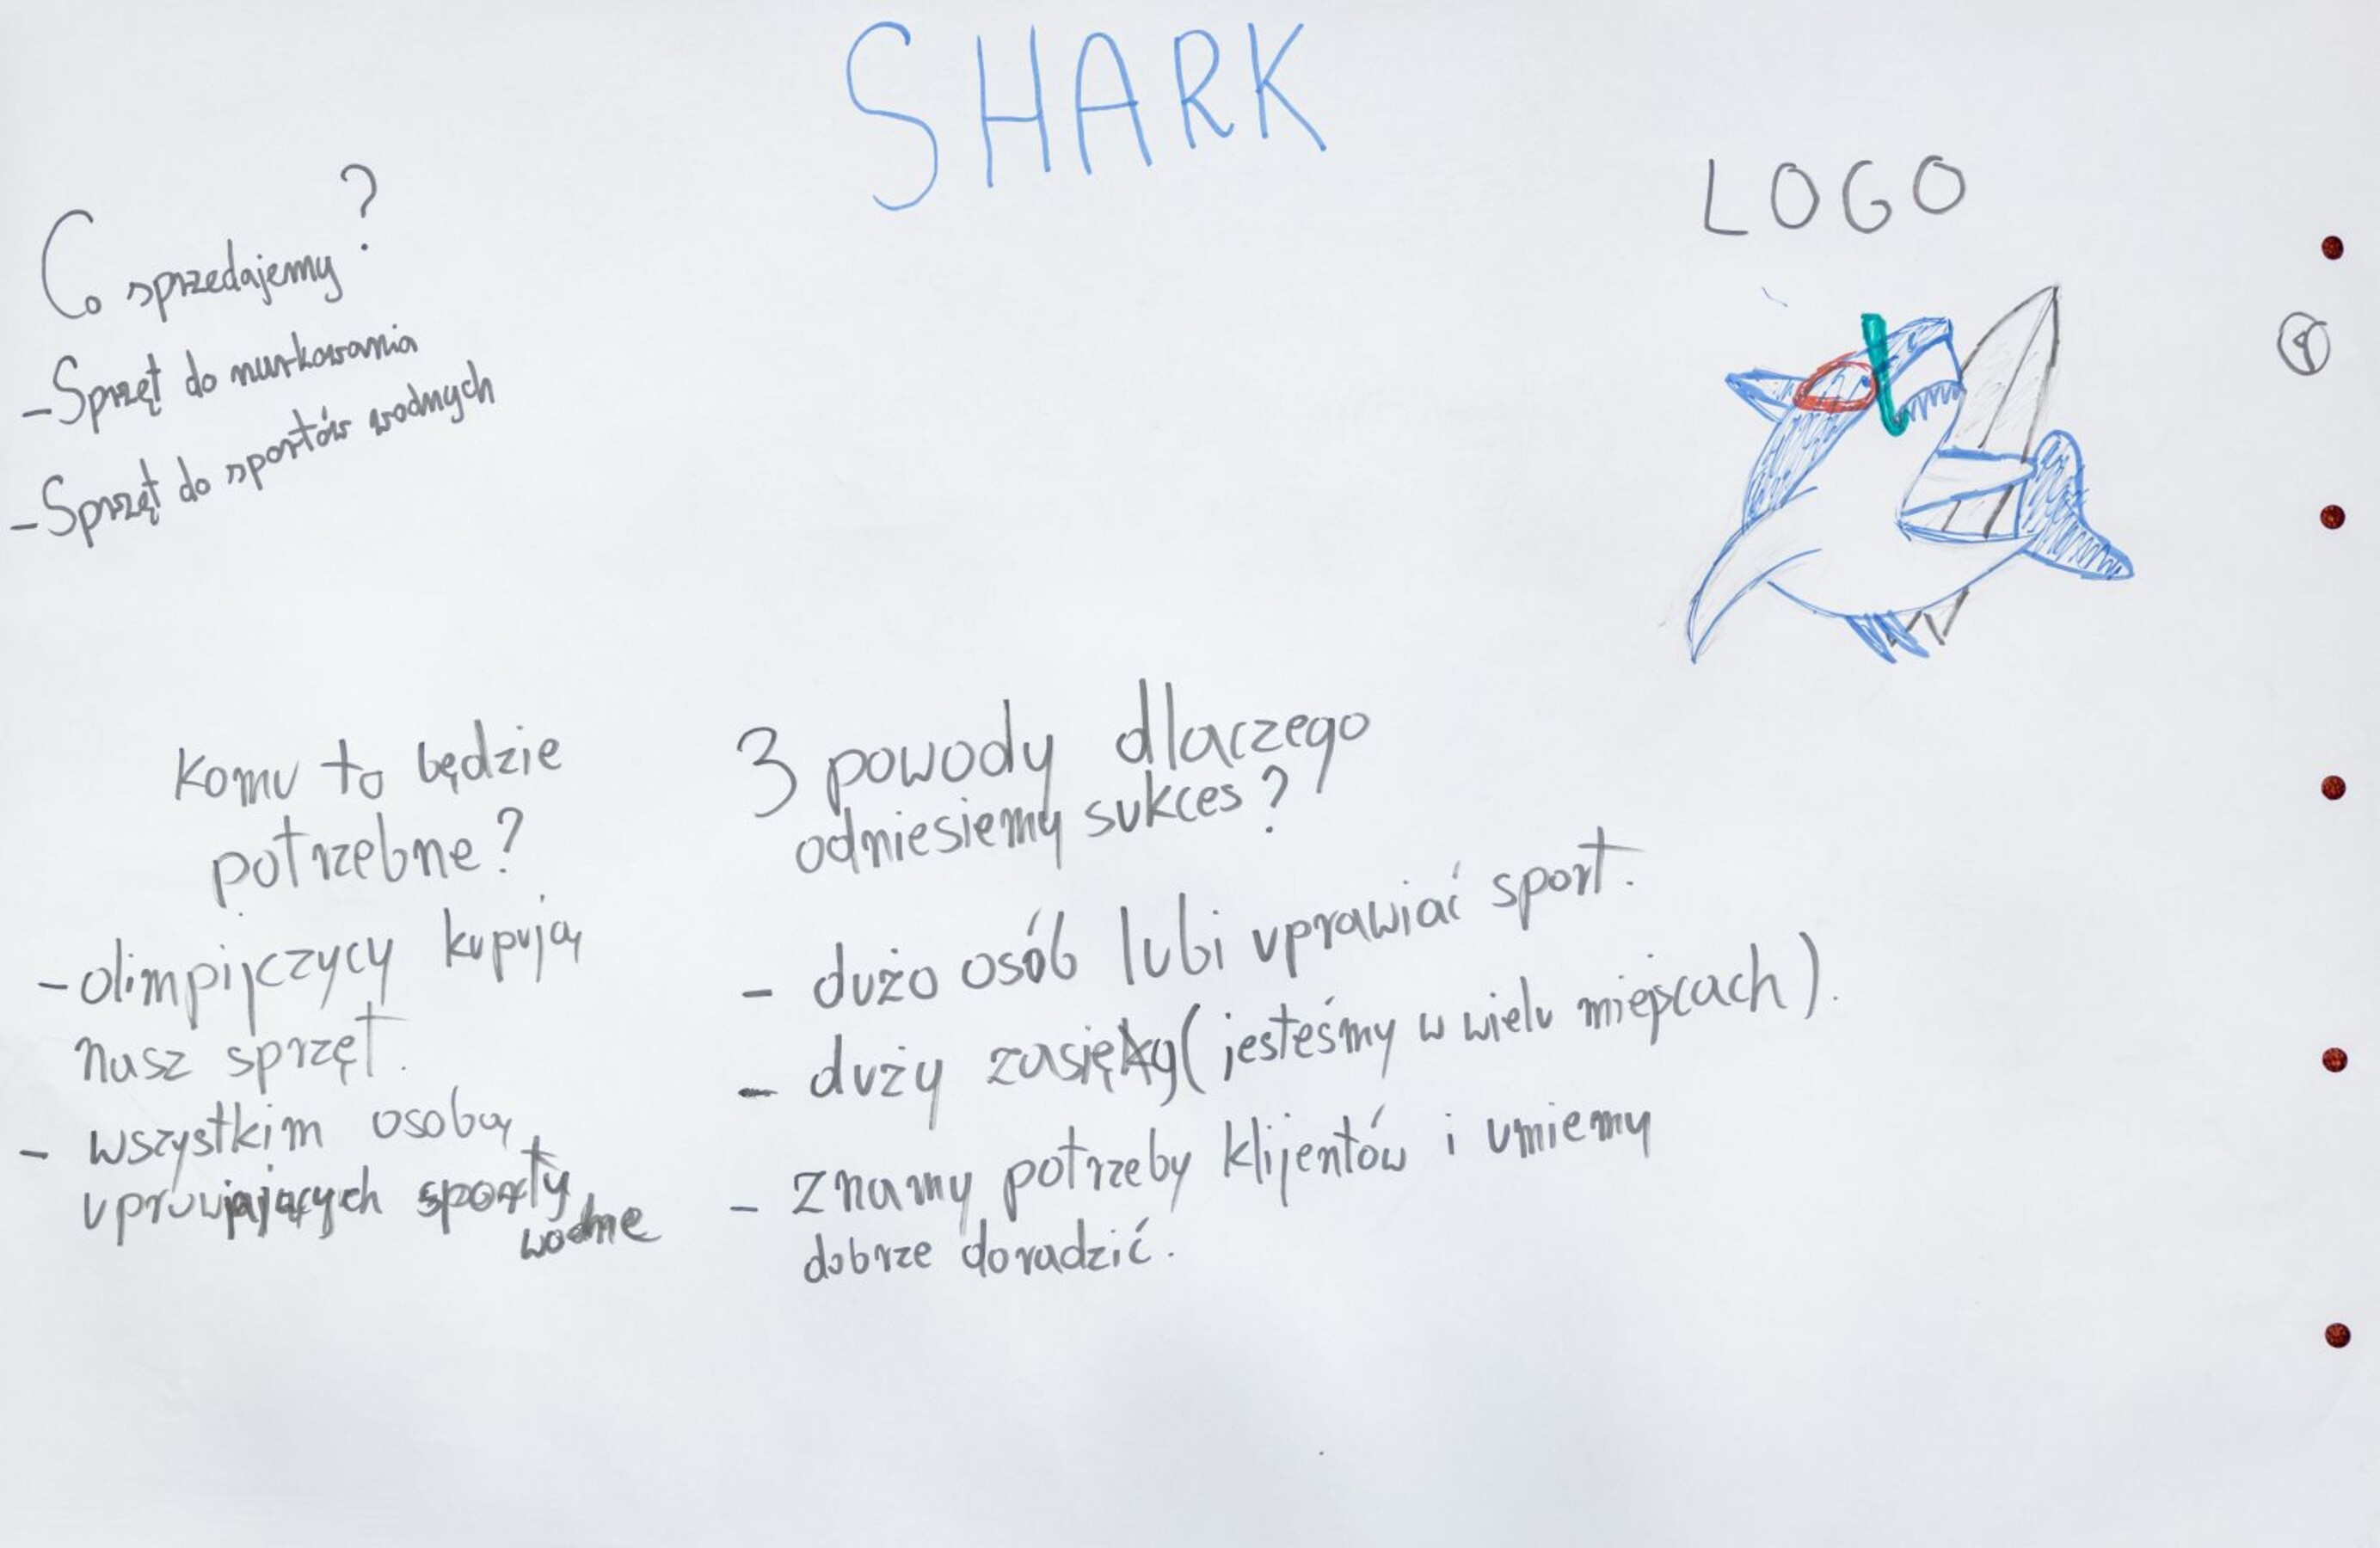 SHARK
Co sprzedajemy?
-Sprzęt do nurkowania
-Sprzęt do sportów wodnych
LOGO
Komu to będzie
potrzebne?
-olimpijczycy kupują
nasz sprzęt.
- wszystkim osobą
uprawiajających sporty
wodne
3 powody dlaczego
odniesiemy sukces?
- dużo osób lubi uprawiać sport.
- duży zasięg (jesteśmy w wielu miejscach).
- znamy potrzeby klijentów i umiemy
dobrze doradzić.